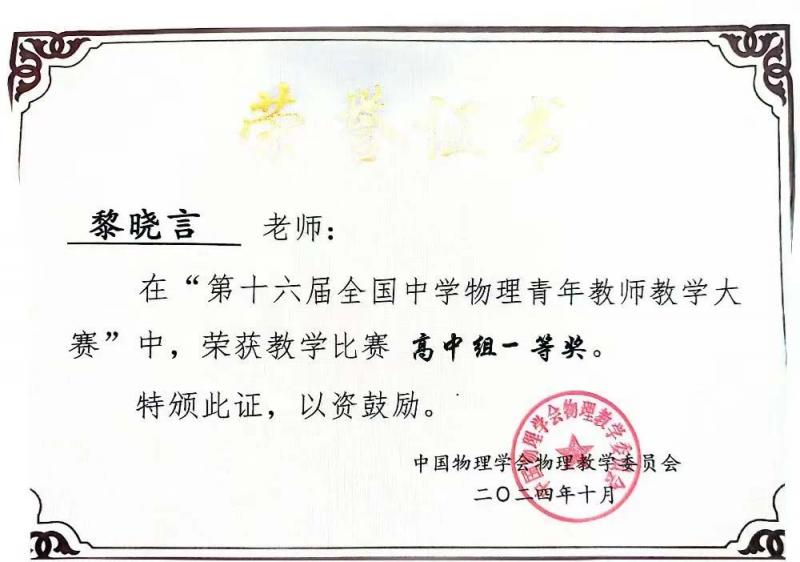 荣誉证书
黎晓言 老师：
在“第十六届全国中学物理青年教师教学大
赛”中，荣获教学比赛 高中组一等奖。
特颁此证，以资鼓励。
中国物理学会物理教学委员会
二〇二四年十月
中国物理学会物理教学委员会